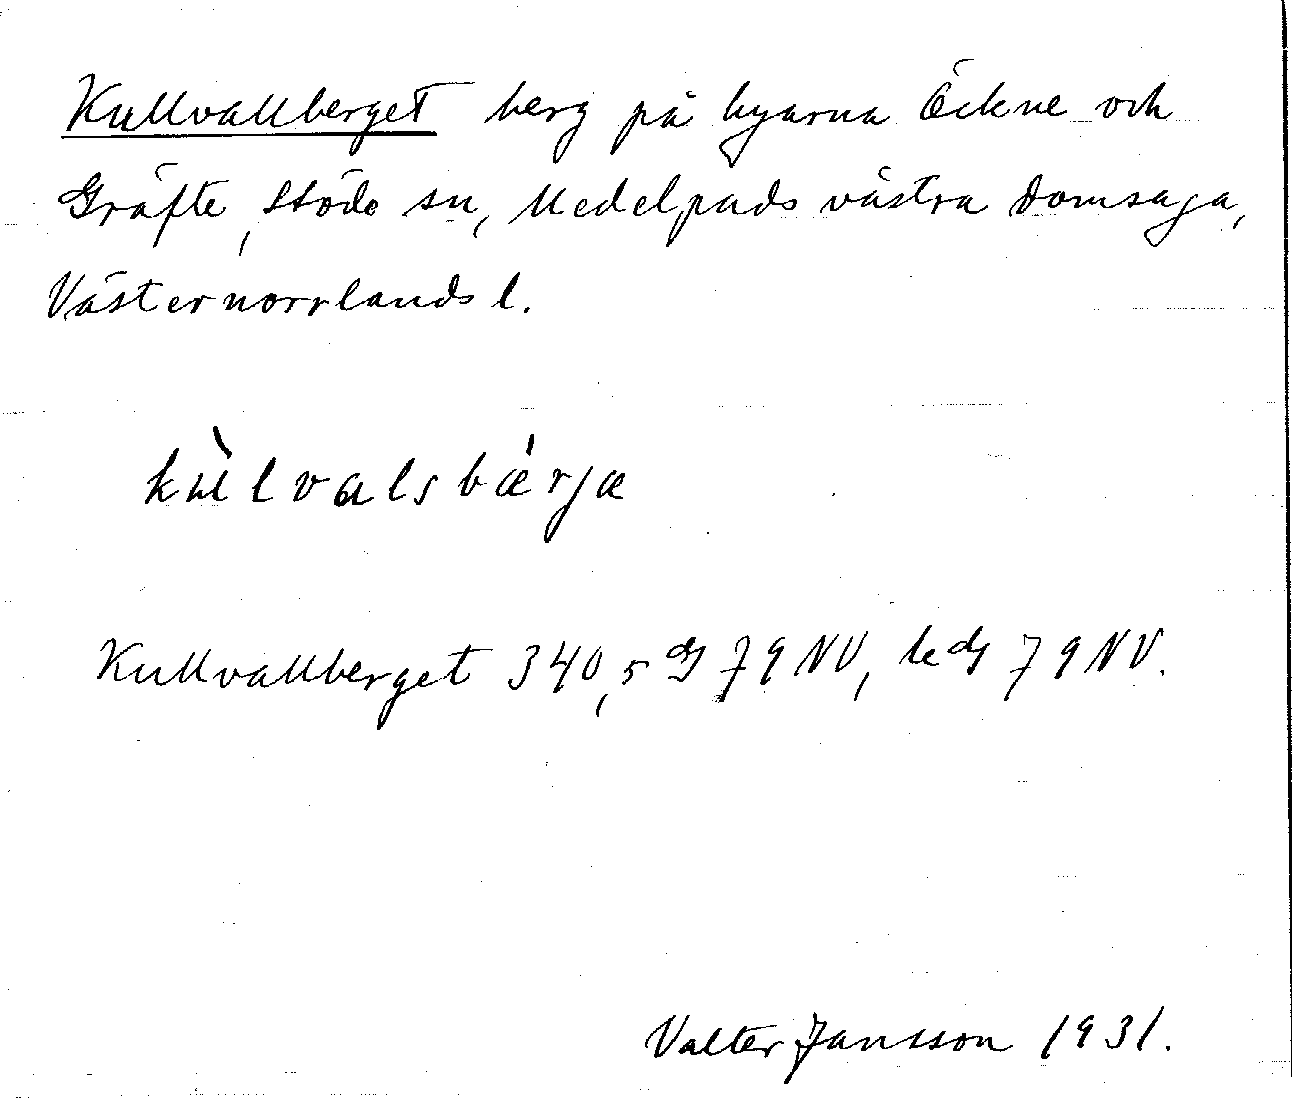 Kullvallberget berg på byarna Öckne och
Gräfte, Stöde sn, Medelpads västra domsaga,
Västernorrlands l.
kùlvalsbǽrjæ
Kullvallberget 340,5 G 79 NV, led 79 NV.
Valter Jansson 1931.